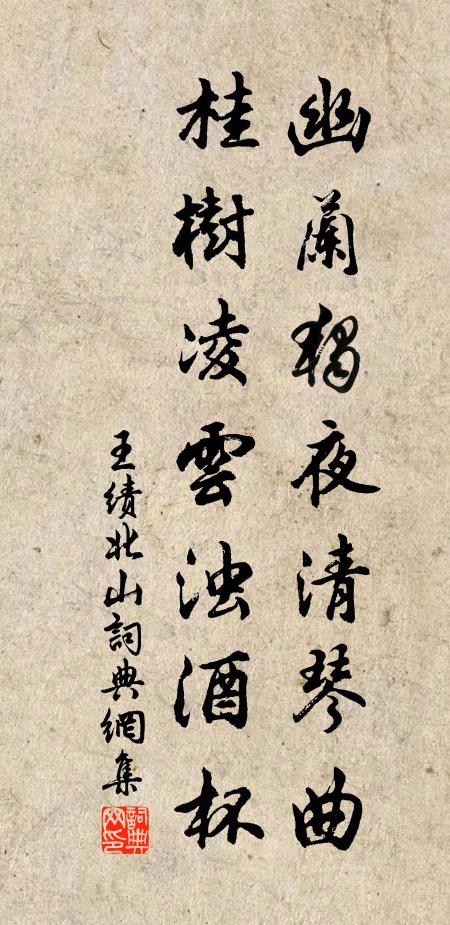 幽蘭獨夜清琴曲
桂樹凌雲濁酒杯
王績北山詞典網集
詞典
网印